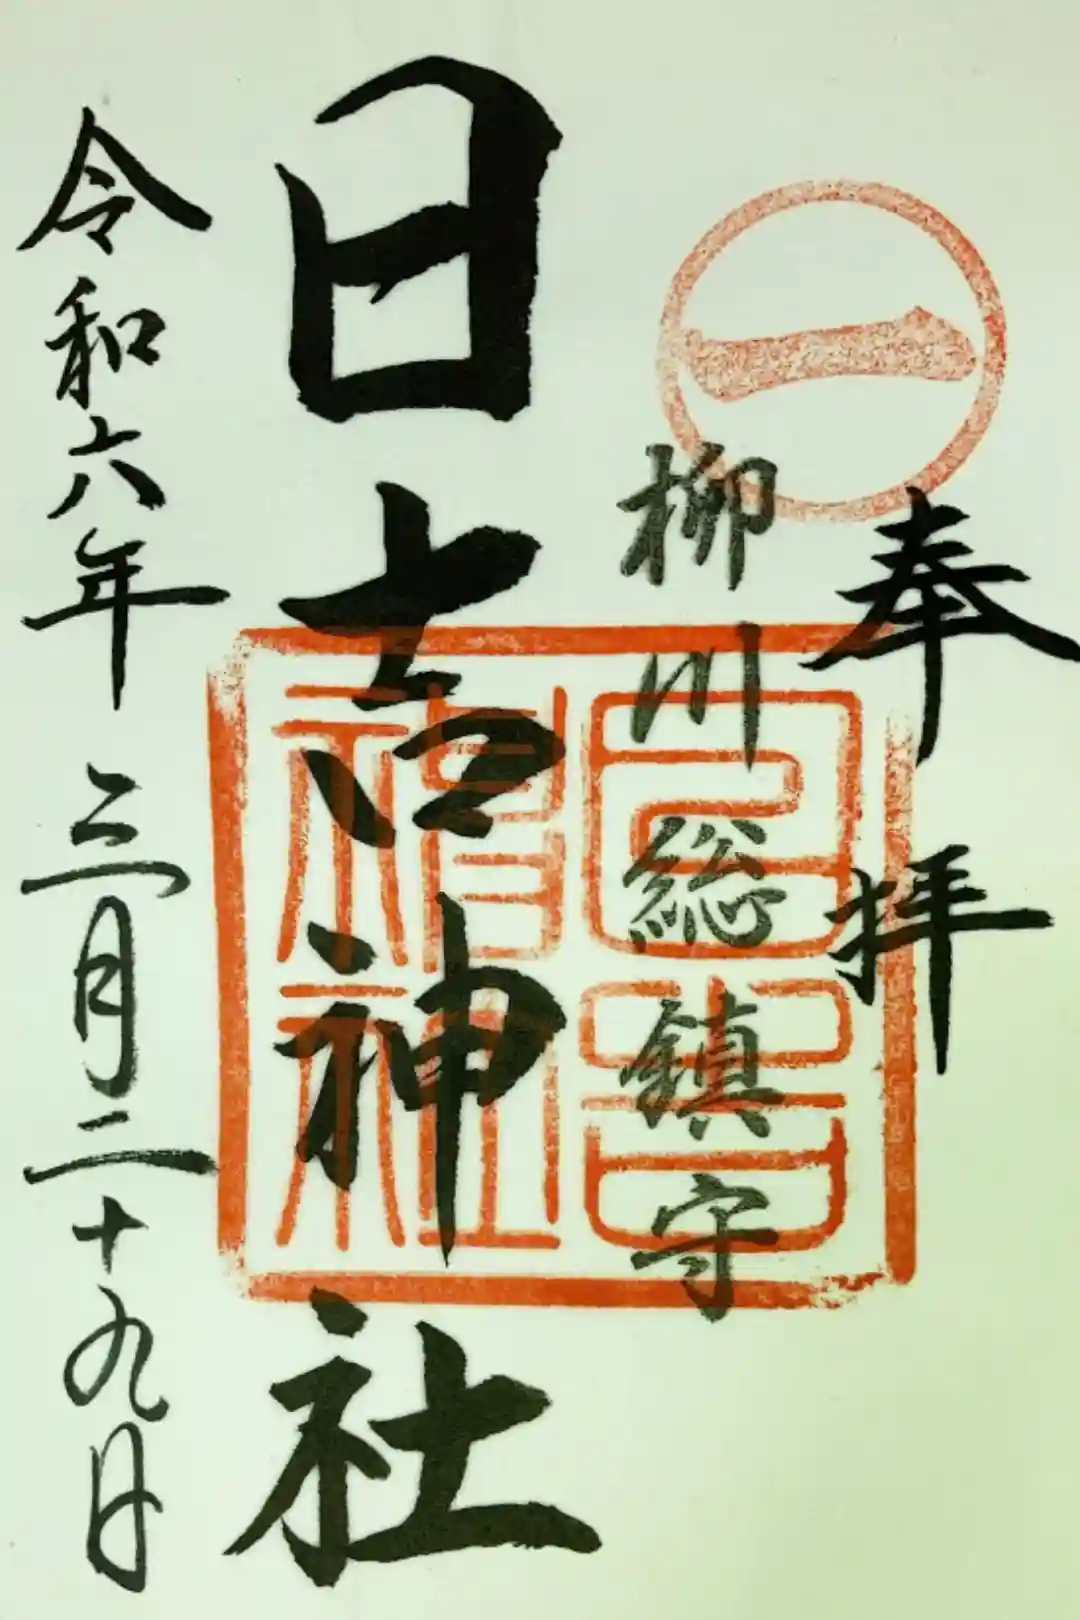 一
奉拝
柳川総鎮守
日吉
神社
日吉神社
令和六年三月二十九日